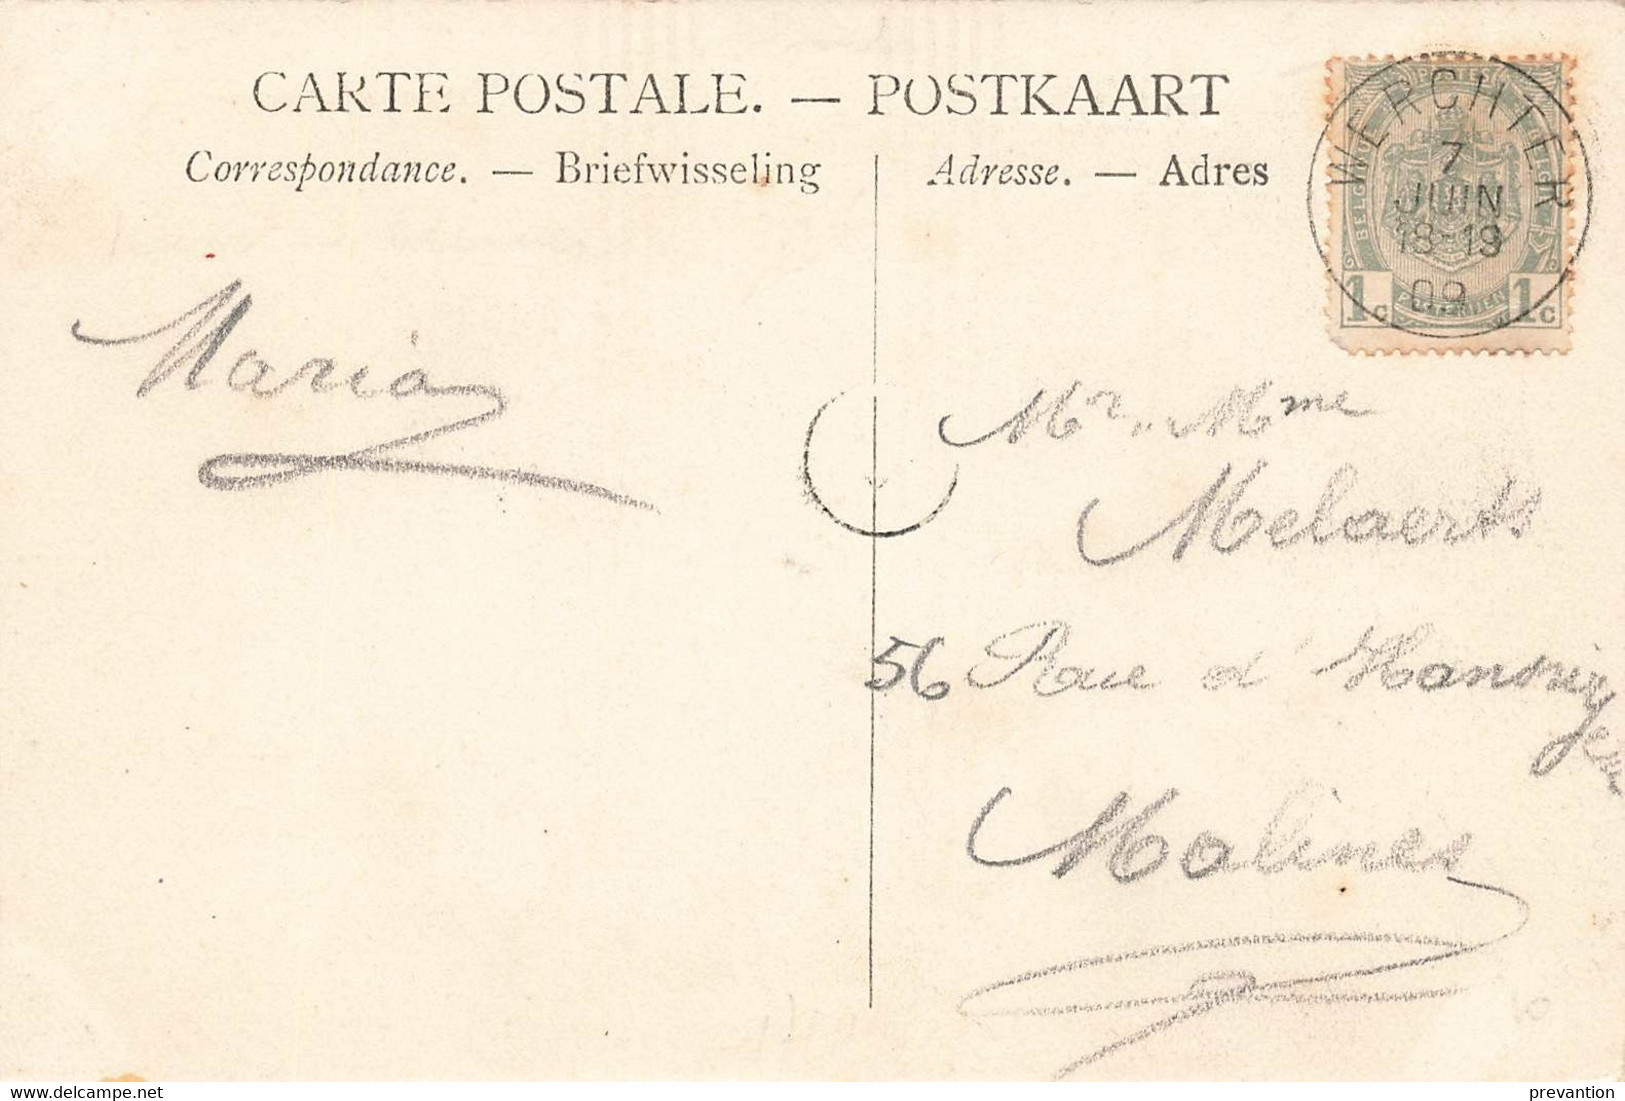 CARTE POSTALE. — POSTKAART
Correspondance. — Briefwisseling
Adresse. — Adres
WERCHTER
7
JUIN
18-19
09
1c POSTERIJEN 1c
Maria
Mr. Mme
Melaerts
56 Rue d'Hanswijck
Malines
delcampe.net
prevantion